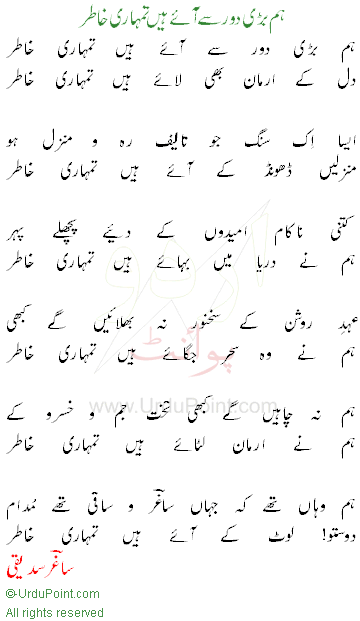 ہم بڑی دور سے آئے ہیں تمہاری خاطر
ہم بڑی دور سے آئے ہیں تمہاری خاطر
دل کے ارمان بھی لائے ہیں تمہاری خاطر
ایسا اِک سنگ جو تالیف رہ و منزل ہو
منزلیں ڈھونڈ کے آئے ہیں تمہاری خاطر
کتنی ناکام امیدوں کے دئیے پچھلے پہر
ہم نے دریا میں بہائے ہیں تمہاری خاطر
عہدِ روشن کے سخنور نہ بھلائیں گے کبھی
ہم نے وہ سحر جگائے ہیں تمہاری خاطر
ہم نہ چاہیں گے کبھی تخت جم و خسرو کے
ہم نے ارمان لٹائے ہیں تمہاری خاطر
ہم وہاں تھے کہ جہاں ساغرؔ و ساقی تھے مُدام
دوستو! لوٹ کے آئے ہیں تمہاری خاطر
ساغرؔ صدیقی
اردو
پوائنٹ
www.UrduPoint.com
©-UrduPoint.com
All rights reserved